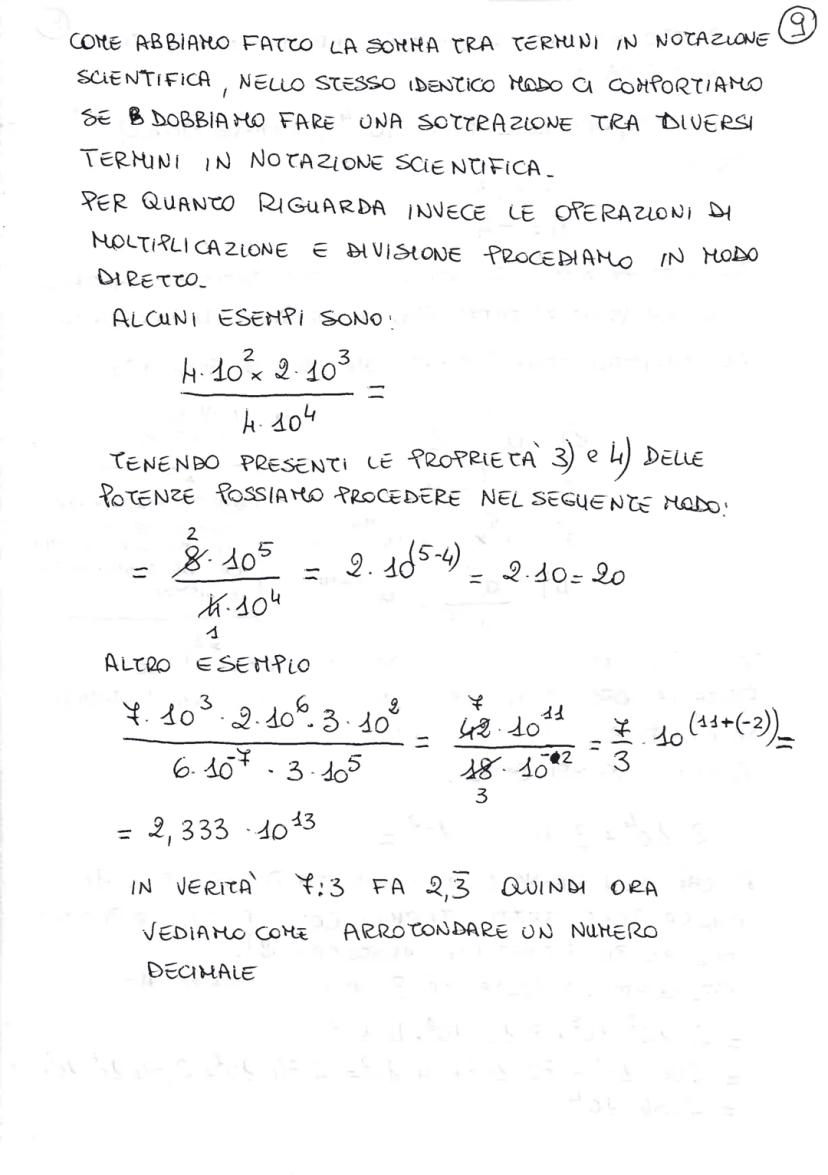 9
COME ABBIAMO FATTO LA SOMMA TRA TERMINI IN NOTAZIONE
SCIENTIFICA, NELLO STESSO IDENTICO MODO CI COMPORTIAMO
SE DOBBIAMO FARE UNA SOTTRAZIONE TRA DIVERSI
TERMINI IN NOTAZIONE SCIENTIFICA.
PER QUANTO RIGUARDA INVECE LE OPERAZIONI DI
MOLTIPLICAZIONE E DIVISIONE PROCEDIAMO IN MODO
DIRETTO.
ALCUNI ESEMPI SONO:
4·10² × 2·10³ =
4·10⁴
TENENDO PRESENTI LE PROPRIETÀ 3) e 4) DELLE
POTENZE POSSIAMO PROCEDERE NEL SEGUENTE MODO:
2
= 8·10⁵ = 2·10⁽⁵⁻⁴⁾ = 2·10 = 20
4·10⁴
1
ALTRO ESEMPIO
7
7·10³ · 2·10⁶ · 3·10² = 42·10¹¹ = 7/3 · 10^(11+(-2)) =
6·10⁻⁷ · 3·10⁵ 18·10⁻²
3
= 2,333 · 10¹³
IN VERITÀ 7:3 FA 2,3̅ QUINDI ORA
VEDIAMO COME ARROTONDARE UN NUMERO
DECIMALE